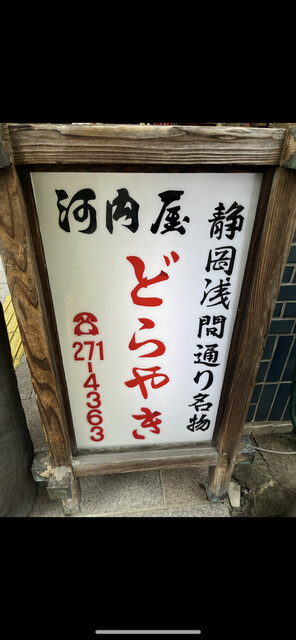 静岡浅間通り名物
河内屋
どらやき
☎271-4363